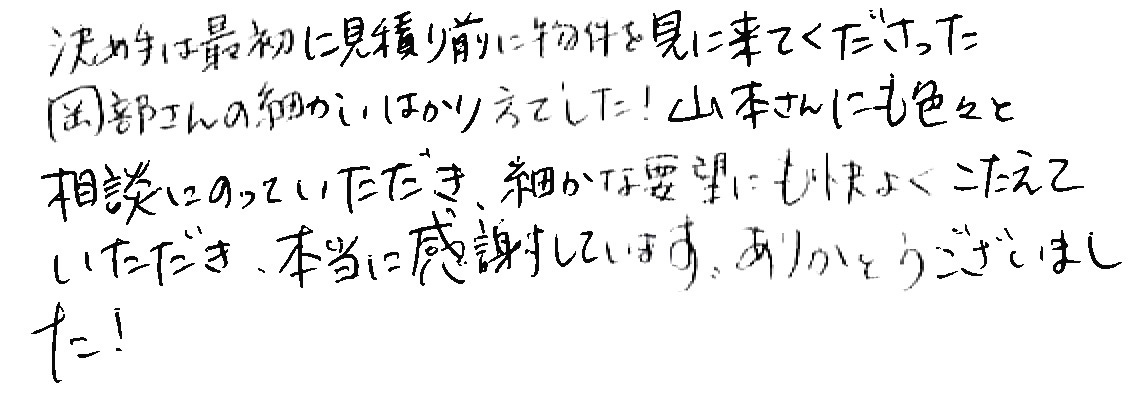 決め手は最初に見積り前に物件を見に来てくださった
岡部さんの細かいはからえでした！山本さんにも色々と
相談にのっていただき、細かな要望にも快よくこたえて
いただき、本当に感謝しています。ありがとうございまし
た！